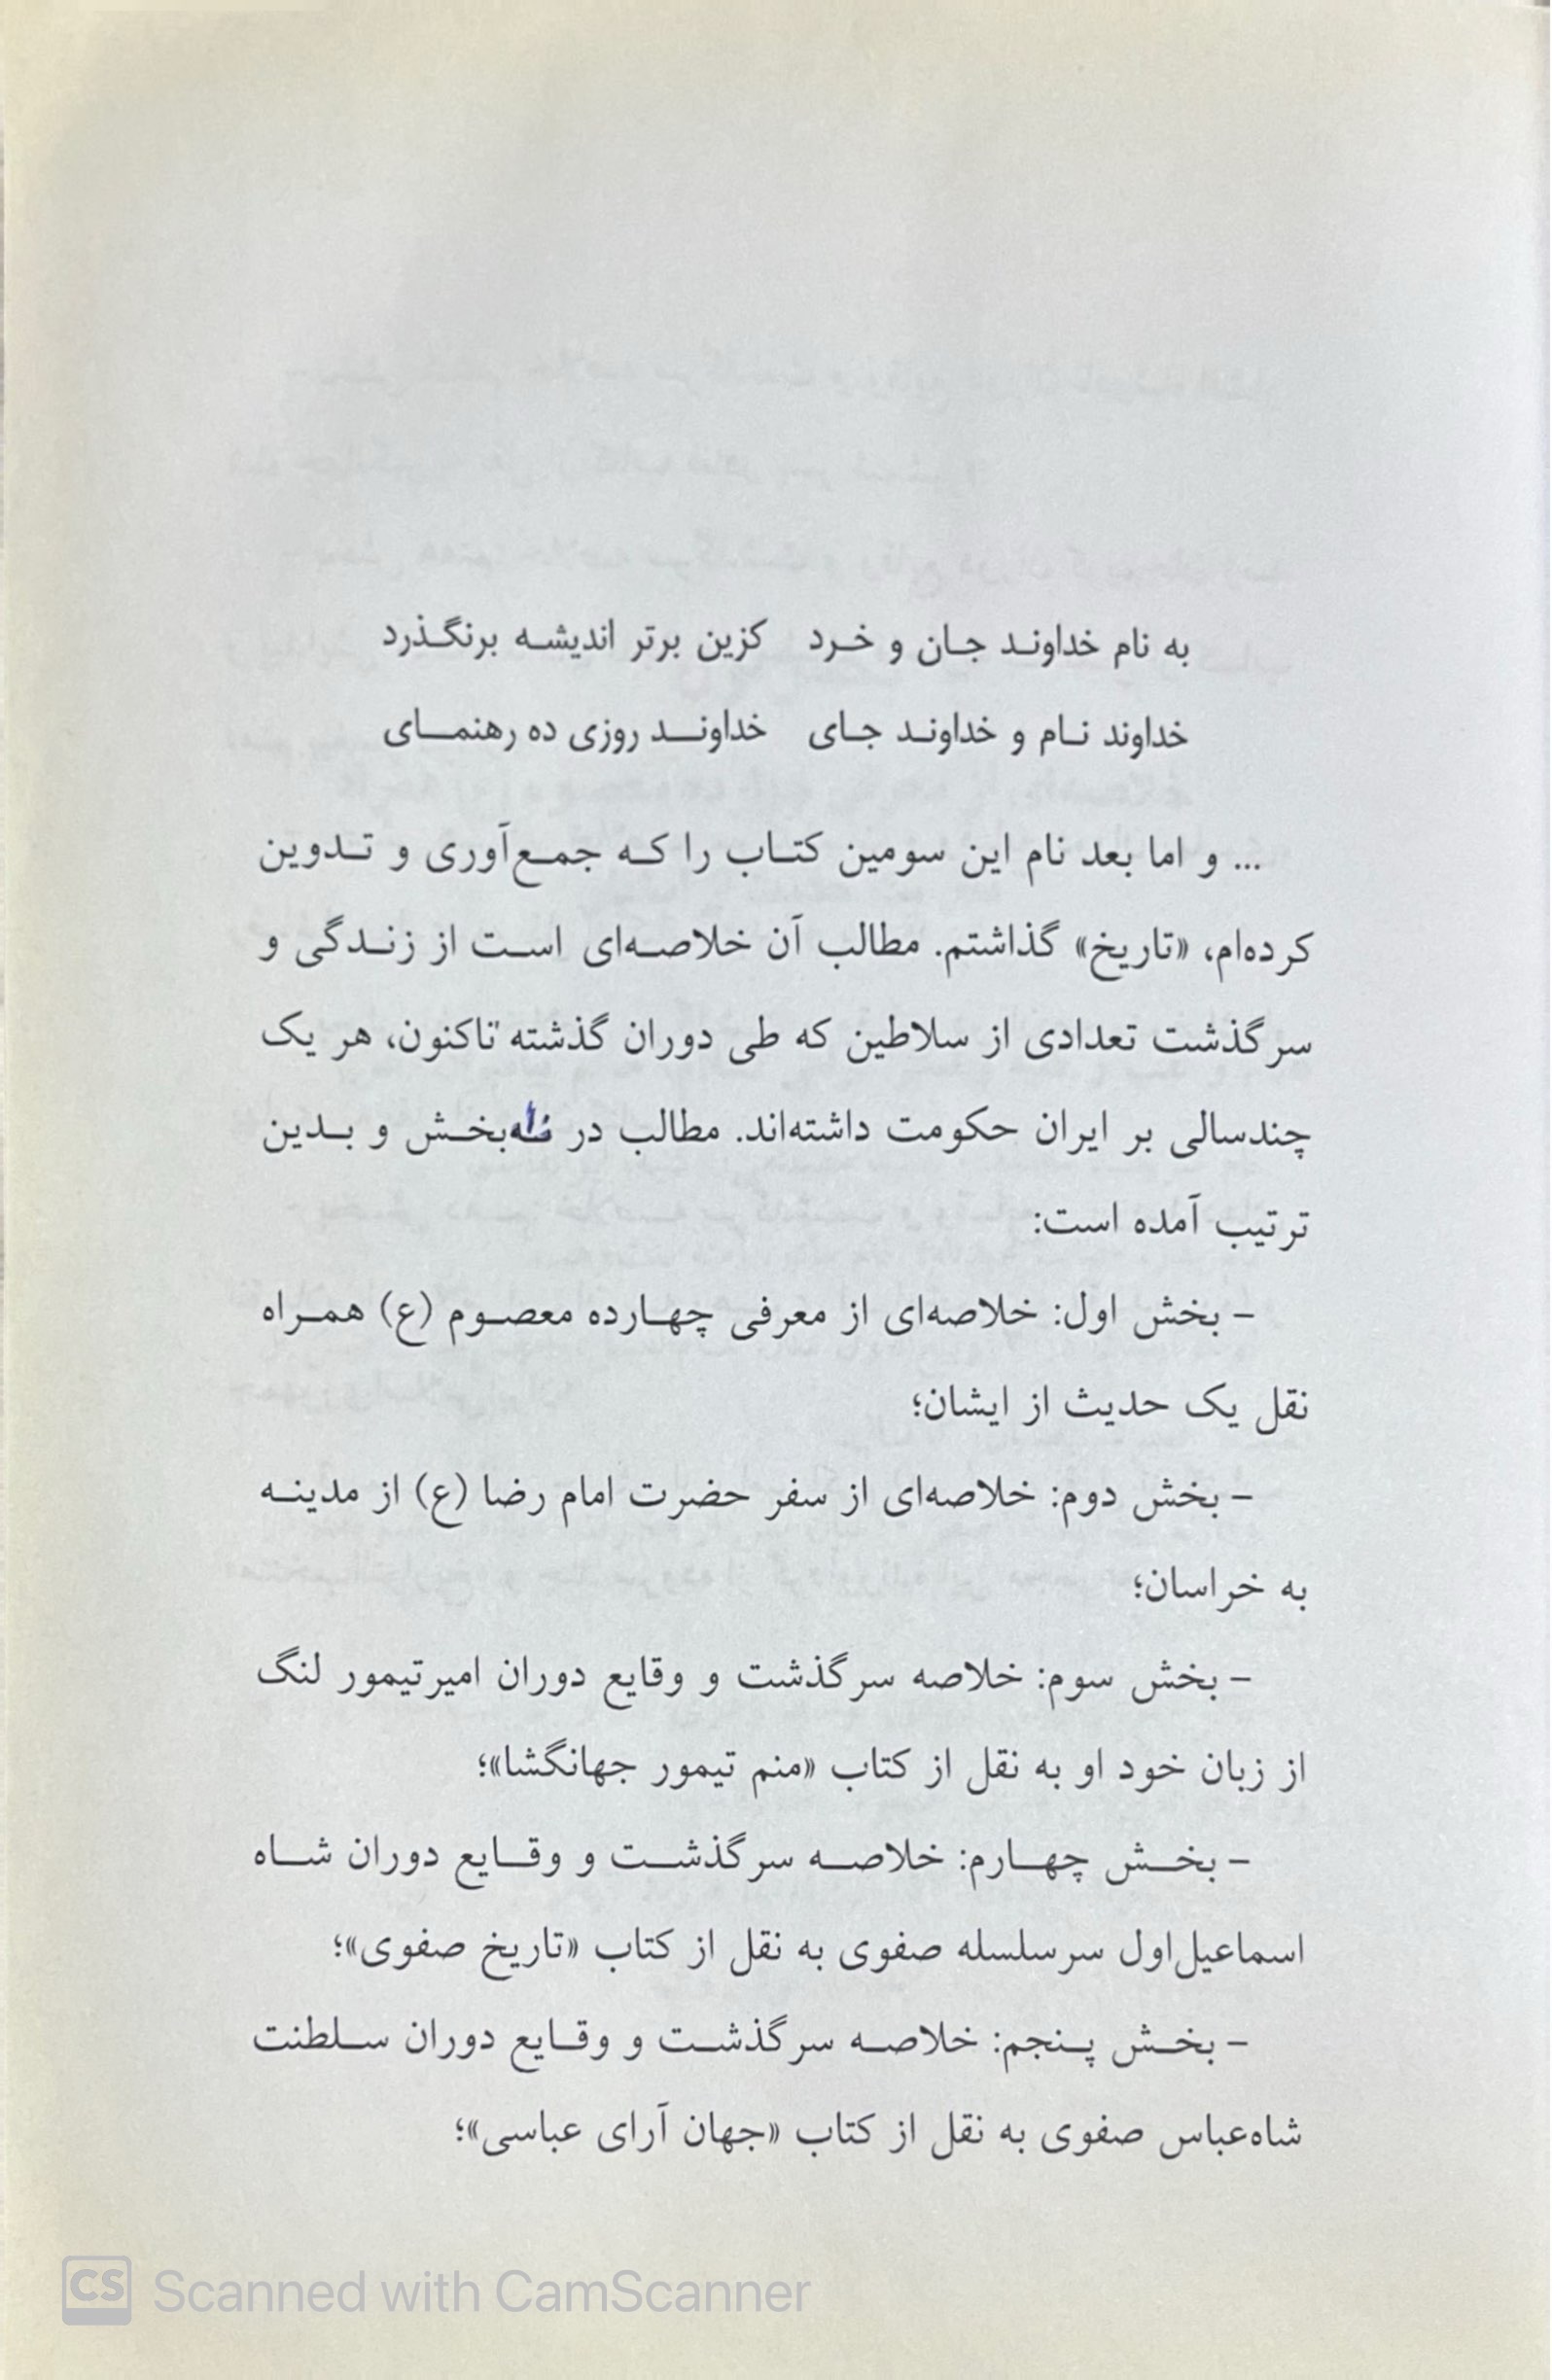 به نام خداوند جان و خرد کزین برتر اندیشه برنگذرد
خداوند نام و خداوند جای خداوند روزی ده رهنمای
... و اما بعد نام این سومین کتاب را که جمع‌آوری و تدوین
کرده‌ام، «تاریخ» گذاشتم. مطالب آن خلاصه‌ای است از زندگی و
سرگذشت تعدادی از سلاطین که طی دوران گذشته تاکنون، هر یک
چندسالی بر ایران حکومت داشته‌اند. مطالب در بخش و بدین
ترتیب آمده است:
- بخش اول: خلاصه‌ای از معرفی چهارده معصوم (ع) همراه
نقل یک حدیث از ایشان؛
- بخش دوم: خلاصه‌ای از سفر حضرت امام رضا (ع) از مدینه
به خراسان؛
- بخش سوم: خلاصه سرگذشت و وقایع دوران امیرتیمور لنگ
از زبان خود او به نقل از کتاب «منم تیمور جهانگشا»؛
- بخش چهارم: خلاصه سرگذشت و وقایع دوران شاه
اسماعیل‌اول سرسلسله صفوی به نقل از کتاب «تاریخ صفوی»؛
- بخش پنجم: خلاصه سرگذشت و وقایع دوران سلطنت
شاه‌عباس صفوی به نقل از کتاب «جهان آرای عباسی»؛
CS Scanned with CamScanner